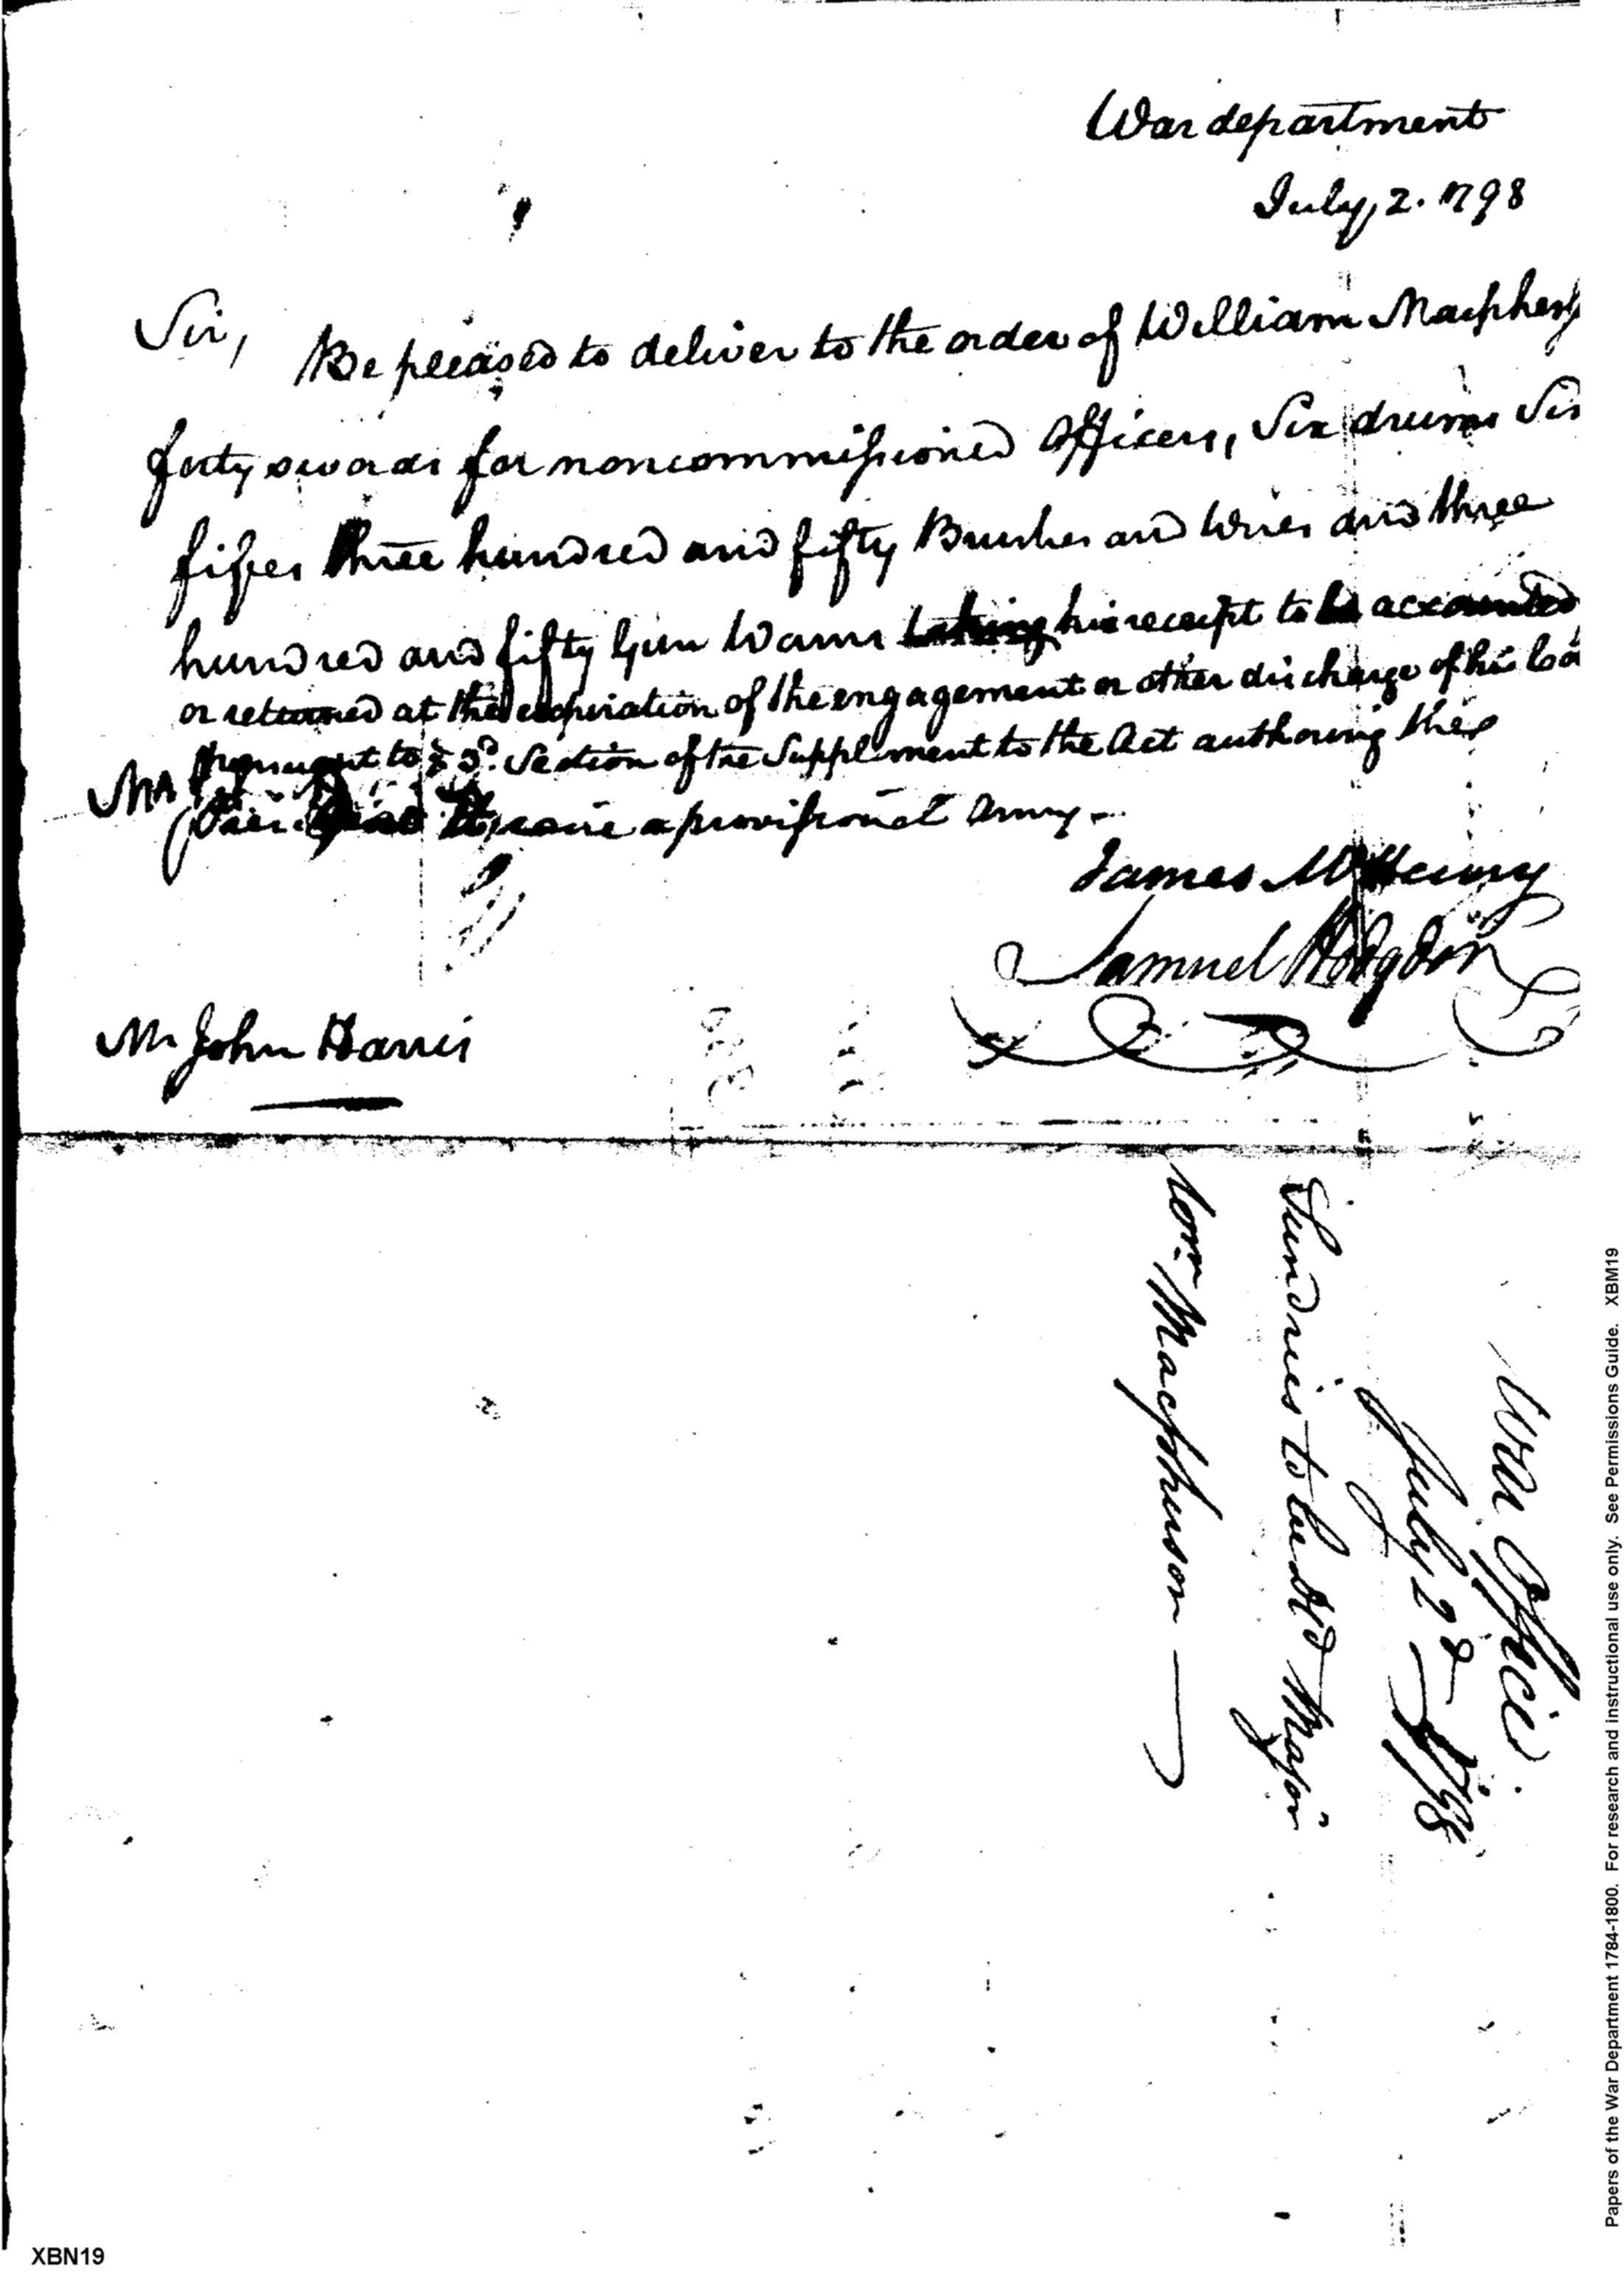 War department
July, 2. 1798
Sir,
Be pleased to deliver to the order of William Macphers
forty swords for noncommissioned Officers, Six drums Six
fifes three hundred and fifty Brushes and Wires and three
hundred and fifty Gun Worms taking his receipt to be accounted
or returned at the expiration of the engagement or other discharge of his
pursuant to 3d. Section of the Supplement to the Act authoring the
to raise a provisional Army.
James McHenry
Samuel Hodgdon
Mr John Harris
War Office
July 2d 1798
Sundries to be dd Major
Wm Macpherson
Papers of the War Department 1784-1800. For research and instructional use only. See Permissions Guide. XBM19
XBN19